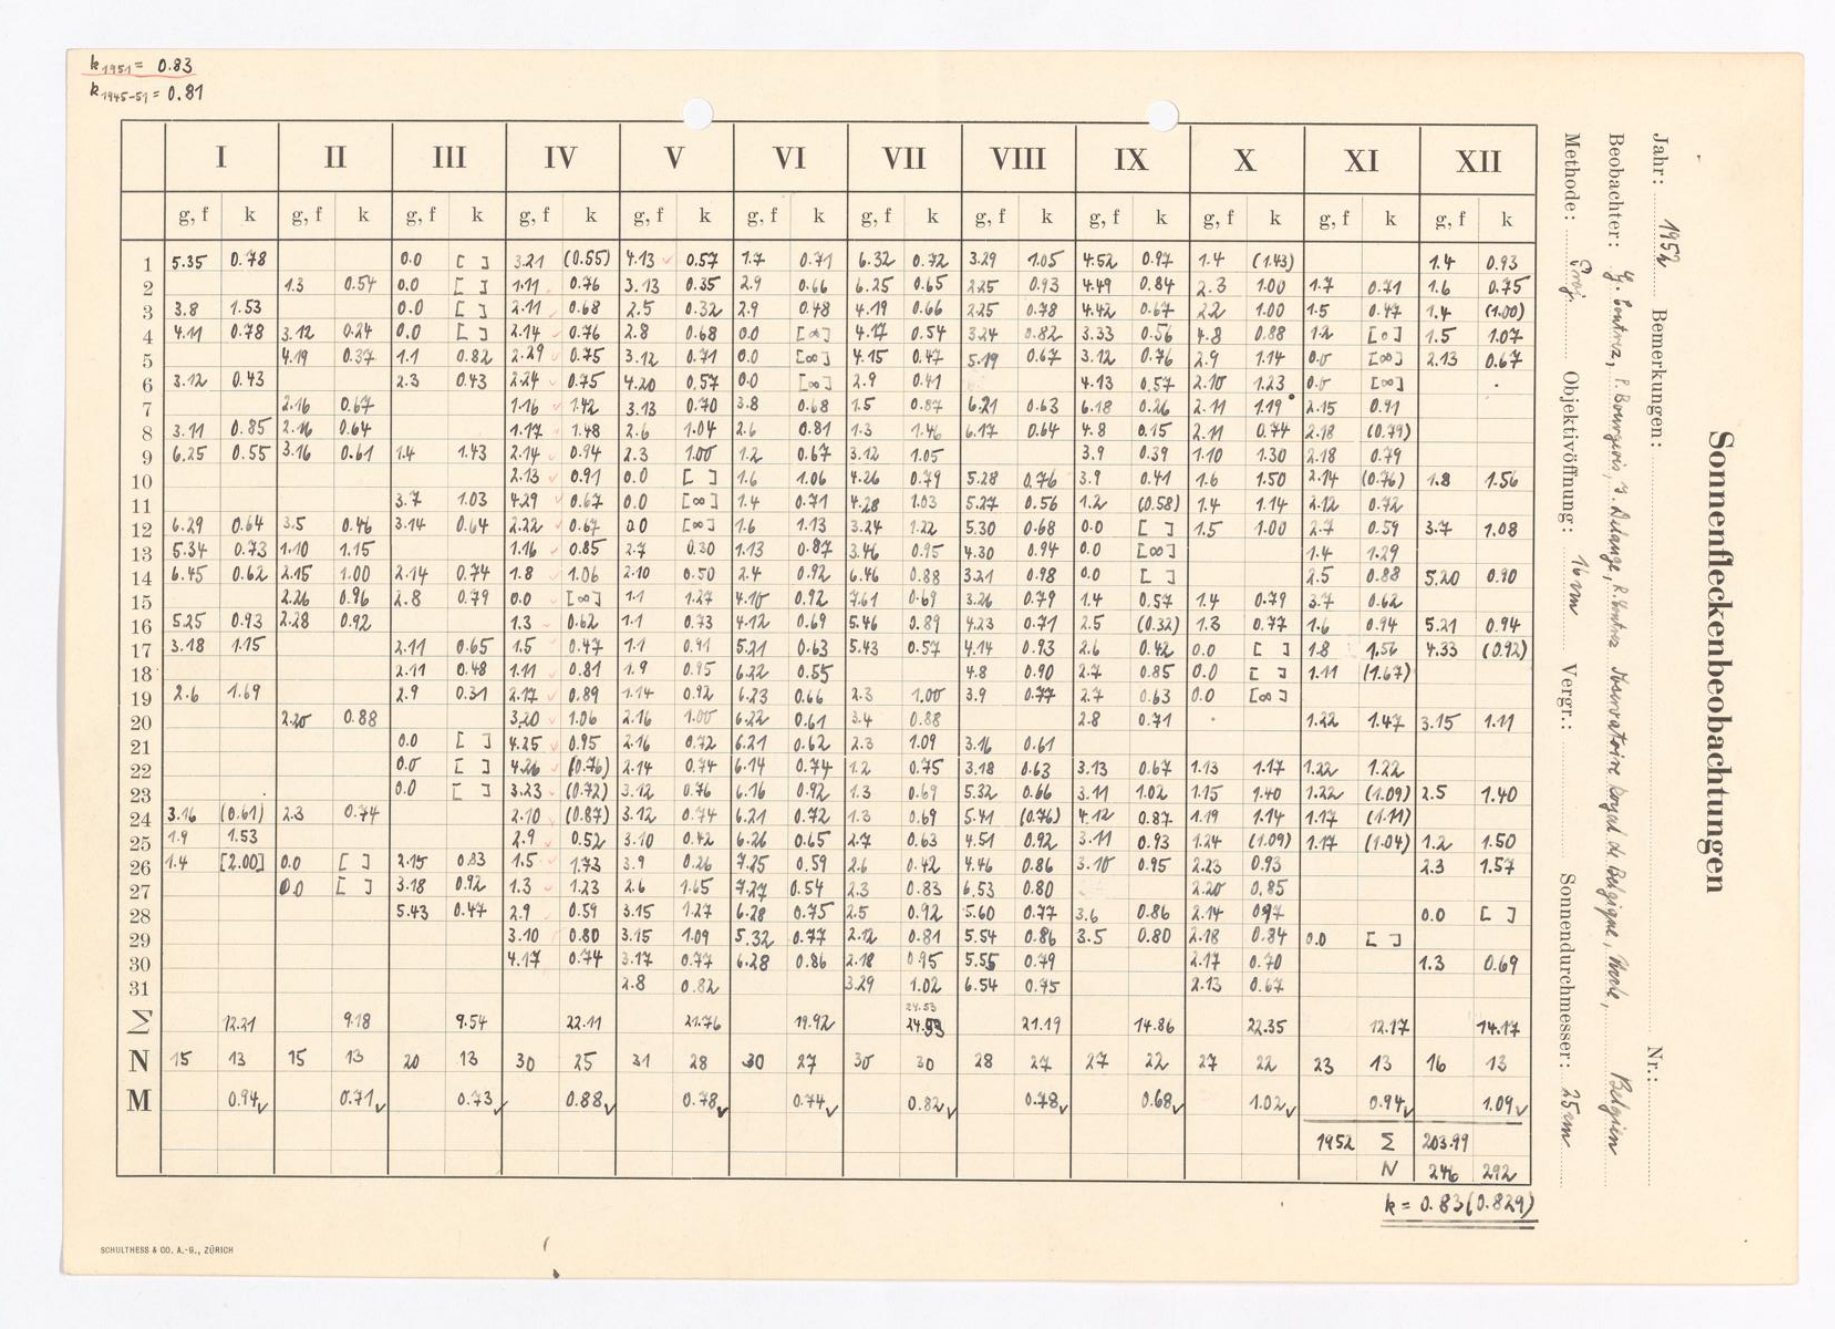 k1951 = 0.83
k1945-51 = 0.81
Sonnenfleckenbeobachtungen
Jahr: 1952 Bemerkungen: Nr.:
Beobachter: Belgien
Methode: Proj. Objektivöffnung: 16 cm Vergr.: Sonnendurchmesser: 25 cm
I II III IV V VI VII VIII IX X XI XII
g, f k g, f k g, f k g, f k g, f k g, f k g, f k g, f k g, f k g, f k g, f k g, f k
1 5.35 0.78 0.0 [ ] 3.21 (0.55) 4.13 0.57 1.7 0.71 6.32 0.72 3.29 1.05 4.52 0.97 1.4 (1.43) 1.4 0.93
2 1.3 0.54 0.0 [ ] 1.11 0.76 3.13 0.35 2.9 0.66 6.25 0.65 2.25 0.93 4.49 0.84 2.3 1.00 1.7 0.71 1.6 0.75
3 3.8 1.53 0.0 [ ] 2.11 0.68 2.5 0.32 2.9 0.48 4.19 0.66 2.25 0.78 4.42 0.67 2.2 1.00 1.5 0.47 1.4 (1.00)
4 4.11 0.78 3.12 0.24 0.0 [ ] 2.14 0.76 2.8 0.68 0.0 [∞] 4.17 0.54 3.24 0.82 3.33 0.56 4.8 0.88 1.2 [0] 1.5 1.07
5 4.19 0.37 1.1 0.82 2.29 0.75 3.12 0.71 0.0 [∞] 4.15 0.47 5.19 0.67 3.12 0.76 2.9 1.14 0.0 [∞] 2.13 0.67
6 3.12 0.43 2.3 0.43 2.24 0.75 4.20 0.57 0.0 [∞] 2.9 0.41 4.13 0.57 2.10 1.23 0.0 [∞]
7 2.16 0.67 1.16 1.42 3.13 0.70 3.8 0.68 1.5 0.87 6.21 0.63 6.18 0.26 2.11 1.19 2.15 0.91
8 3.11 0.85 2.16 0.64 1.17 1.48 2.6 1.04 2.6 0.81 1.3 1.46 6.17 0.64 4.8 0.15 2.11 0.74 2.18 (0.79)
9 6.25 0.55 3.16 0.61 1.4 1.43 2.14 0.94 2.3 1.00 1.2 0.67 3.12 1.05 3.9 0.39 1.10 1.30 2.18 0.79
10 2.13 0.91 0.0 [ ] 1.6 1.06 4.26 0.79 5.28 0.76 3.9 0.41 1.6 1.50 2.14 (0.76) 1.8 1.56
11 3.7 1.03 4.29 0.67 0.0 [∞] 1.4 0.71 4.28 1.03 5.27 0.56 1.2 (0.58) 1.4 1.14 2.12 0.72
12 6.29 0.64 3.5 0.46 3.14 0.64 2.22 0.67 0.0 [∞] 1.6 1.13 3.24 1.22 5.30 0.68 0.0 [ ] 1.5 1.00 2.7 0.59 3.7 1.08
13 5.34 0.73 1.10 1.15 1.16 0.85 2.7 0.30 1.13 0.87 3.46 0.95 4.30 0.94 0.0 [∞] 1.4 1.29
14 6.45 0.62 2.15 1.00 2.14 0.74 1.8 1.06 2.10 0.50 2.4 0.92 6.46 0.88 3.21 0.98 0.0 [ ] 2.5 0.88 5.20 0.90
15 2.26 0.96 2.8 0.79 0.0 [∞] 1.1 1.27 4.10 0.92 7.61 0.69 3.26 0.79 1.4 0.57 1.4 0.79 3.7 0.62
16 5.25 0.93 2.28 0.92 1.3 0.62 1.1 0.73 4.12 0.69 5.46 0.89 4.23 0.71 2.5 (0.32) 1.3 0.77 1.6 0.94 5.21 0.94
17 3.18 1.15 2.11 0.65 1.5 0.47 1.1 0.91 5.21 0.63 5.43 0.57 4.14 0.93 2.6 0.42 0.0 [ ] 1.8 1.56 4.33 (0.92)
18 2.11 0.48 1.11 0.81 1.9 0.95 6.22 0.55 4.8 0.90 2.7 0.85 0.0 [ ] 1.11 (1.67)
19 2.6 1.69 2.9 0.31 2.17 0.89 1.14 0.92 6.23 0.66 2.3 1.00 3.9 0.77 2.7 0.63 0.0 [∞]
20 2.20 0.88 3.20 1.06 2.16 1.00 6.22 0.61 3.4 0.88 2.8 0.71 1.22 1.47 3.15 1.11
21 0.0 [ ] 4.25 0.95 2.16 0.72 6.21 0.62 2.3 1.09 3.16 0.61
22 0.0 [ ] 4.26 (0.76) 2.14 0.74 6.14 0.74 1.2 0.75 3.18 0.63 3.13 0.67 1.13 1.17 1.22 1.22
23 0.0 [ ] 3.23 (0.72) 3.12 0.76 6.16 0.92 1.3 0.69 5.32 0.66 3.11 1.02 1.15 1.40 1.22 (1.09) 2.5 1.40
24 3.16 (0.61) 2.3 0.74 2.10 (0.87) 3.12 0.74 6.21 0.72 1.3 0.69 5.41 (0.76) 4.12 0.87 1.19 1.14 1.17 (1.11)
25 1.9 1.53 2.9 0.52 3.10 0.42 6.26 0.65 2.7 0.63 4.51 0.92 3.11 0.93 1.24 (1.09) 1.17 (1.04) 1.2 1.50
26 1.4 [2.00] 0.0 [ ] 2.15 0.83 1.5 1.73 3.9 0.26 7.25 0.59 2.6 0.42 4.46 0.86 3.10 0.95 2.23 0.93 2.3 1.57
27 0.0 [ ] 3.18 0.92 1.3 1.23 2.6 1.65 7.27 0.54 2.3 0.83 6.53 0.80 2.20 0.85
28 5.43 0.47 2.9 0.59 3.15 1.27 6.28 0.75 2.5 0.92 5.60 0.77 3.6 0.86 2.14 0.97 0.0 [ ]
29 3.10 0.80 3.15 1.09 5.32 0.77 2.12 0.81 5.54 0.86 3.5 0.80 2.18 0.84 0.0 [ ]
30 4.17 0.74 3.17 0.77 6.28 0.86 2.18 0.95 5.55 0.79 2.17 0.70 1.3 0.69
31 2.8 0.82 3.29 1.02 6.54 0.75 2.13 0.67
24.53
Σ 12.21 9.18 9.54 22.11 21.76 19.92 24.53 21.19 14.86 22.35 12.17 14.17
N 15 13 15 13 20 13 30 25 31 28 30 27 30 30 28 27 27 22 27 22 23 13 16 13
M 0.94 0.71 0.73 0.88 0.78 0.74 0.82 0.78 0.68 1.02 0.94 1.09
1952 Σ 203.99
N 246 292
k = 0.83 (0.829)
SCHULTHESS & CO. A.-G., ZÜRICH